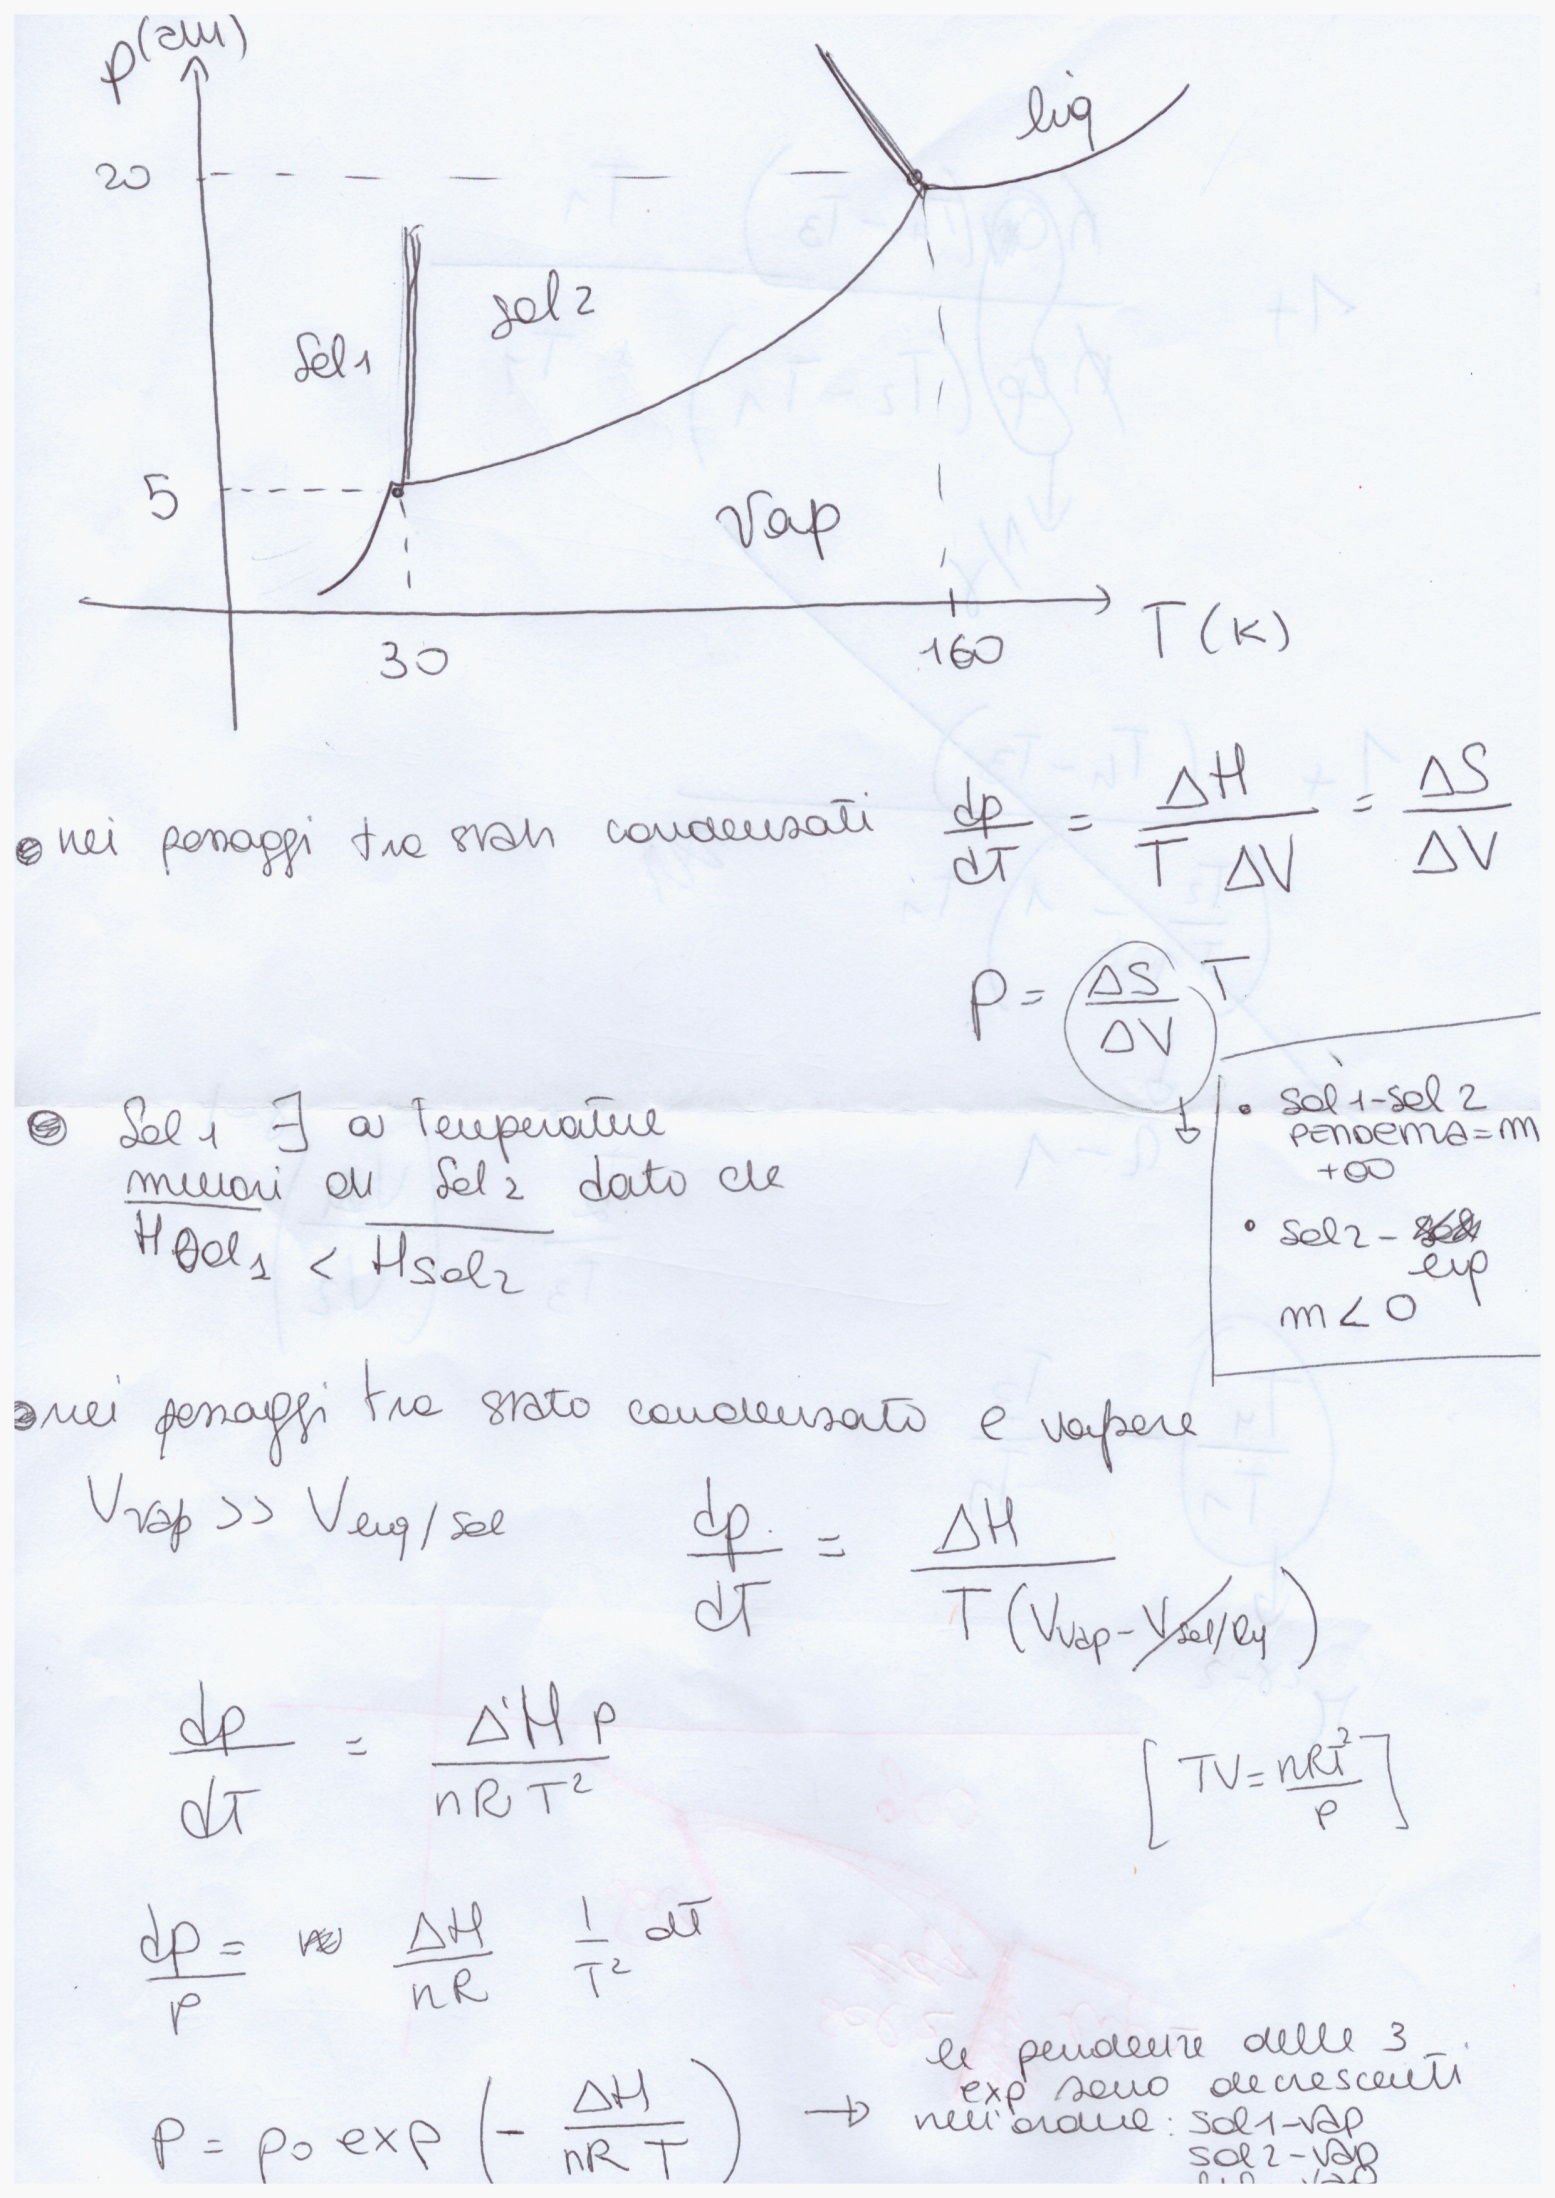 p(atm)
liq
20
sol 2
Sol 1
5
Vap
30
160
T (K)
nei passaggi tra stati condensati dp/dT = ΔH/(T ΔV) = ΔS/ΔV
p = ΔS/ΔV T
• sol 1-sol 2
PENDENZA = m
+∞
• sol 2 - liq
m < 0
Sol 1 ∃ a temperature
minori di Sol 2 dato che
H sol 1 < H sol 2
nei passaggi tra stato condensato e vapore
V vap >> V liq/sol dp/dT = ΔH/(T (V vap - V sol/liq))
dp/dT = ΔH p/(nRT²)
[TV = nRT²/p]
dp/p = ΔH/nR 1/T² dT
p = p₀ exp (- ΔH/(nR T)) →
le pendenze delle 3
exp sono decrescenti
nell'ordine: sol 1-vap
sol 2-vap